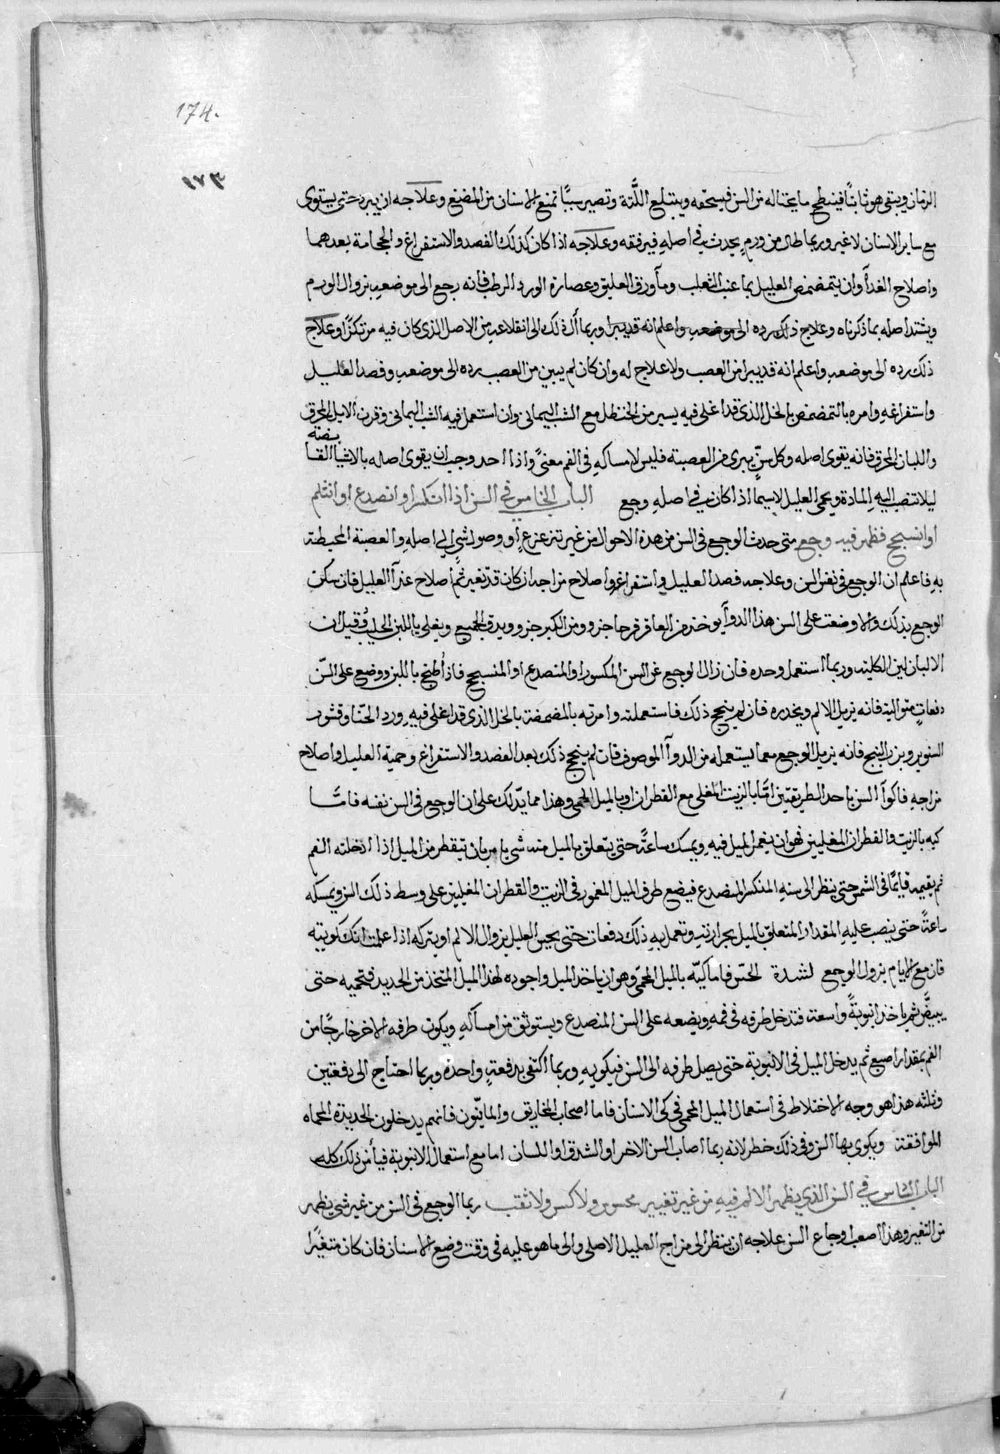 174.
١٧٣
الزمان ويبقى هو ثابتًا فينطح ما يحتاله من السن فيسحقه ويبتلع اللثة وتصير سببًا تمنع الاسنان من المضغ وعلاجه ان يبرد حتى يستوى
مع ساير الاسنان لا غير وربما طال من ورم يحدث في اصله فيرفعه وعلاجه اذا كان كذلك الفصد والاستفراغ والحجامة بعدهما
واصلاح الغدآ وان يتمضمض العليل بماء عنب الثعلب ومآ ورق العليق وعصارة الورد الرطب فانه يرجع الى موضعه بزوال الورم
ويشتد اصله بما ذكرناه وعلاج ذلك رده الى موضعه واعلم انه قد يبرا وربما آل ذلك الى انقلاعه من الاصل الذى كان فيه مرتكزًا وعلاج
ذلك رده الى موضعه واعلم انه قد يبرا من العصب ولا علاج له وان كان لم يبين من العصب رده الى موضعه وفصد العليل
واستفراغه وامره بالتمضمض بالخل الذى قد اغلى فيه يسير من الحنظل مع الشب اليمانى وان استعمل فيه الشب اليمانى وقرن الايل المحرق
واللبان المحرق فانه يقوى اصله وكل سنٍّ يبرى من العصبة فليس لامساكه فى الفم معنىً واذا احد وجب ان يقوى اصله بالاشيا القابضة
ليلا تنصب اليه المادة ويحمى العليل لاسيما اذا كان في اصله وجع الباب الخامس في السن اذا انكسر او انصدع او انثلم
او انسحج فظهر فيه وجع متى حدث الوجع فى السن من هذه الاحوال من غير تزعزع او وصول شى الى اصله والعصبة المحيطة
به فاعلم ان الوجع فى نفس السن وعلاجه فصد العليل واستفراغه واصلاح مزاجه ان كان قد تغير ثم اصلاح غدآ العليل فان سكن
الوجع بذلك والا وضعت على السن هذا الدوآ يوخذ من العاقر قرحا جزو ومن الكبر جزو ويدق الجميع ويغلى باللبن الحلب وقيل ان
الالبان لبن الكلبة وربما استعمل وحده فان زال الوجع عن السن المكسور او المنصدع او المنسحج فاذا طبخ باللبن ووضع على السن
دفعاتٍ متوالية فانه يزيل الالم ويخدره فان لم ينجح ذلك فاستعمله وامرته بالمضمضة بالخل الذى قد اغلى فيه ورد الحنا وقشور
الصنوبر وبزر البنج فانه يزيل الوجع مع ما يستعمله من الدوآ الموصوف فان لم ينجح ذلك بعد الفصد والاستفراغ وحمية العليل واصلاح
مزاجه فاكوآ السن باحد الطريقتين امّا بالزيت المغلى مع القطران او بالميل المحمى وهذا مما يدلك على ان الوجع فى السن نفسه فامّا
كيه بالزيت والقطران المغليين فهو ان يغمس الميل فيه ويمسك ساعةً حتى يتعلق بالميل منه شى يامر بان يتقطر من الميل اذا ادخلته الفم
ثم يقيمه قايمًا فى الشمس حتى ينظر الى سنه المنكسر المنصدع فيضع طرف الميل المغمور فى الزيت والقطران المغليين على وسط ذلك السن ويمسكه
ساعةً حتى ينصب عليه المقدار المتعلق بالميل بحرارته وتعمل به ذلك دفعات حتى يحس العليل بزوال الالم او يتركه اذا علمت انك كويته
فان مع الايام يزول الوجع لشدة الحس فاما كيّه بالميل المحمّى وهو ان ياخذ الميل واجوده لهذا الميل المتخذ من الحديد فتحميه حتى
يبيضّ ثم ياخذ انبوبةً واسعة فتدخل طرفه فى فمه ويضعه على السن المنصدع ويستوثق من امساكه ويكون طرفه الاخر خارجًا من
الفم بمقدار اصبع ثم يدخل الميل فى الانبوبة حتى يصل طرفه الى السن فيكويه وربما اكتفى بدفعةٍ واحدة وربما احتاج الى دفعتين
وثلثه هذا هو وجه الاختلاط فى استعمال الميل المحمى فى كى الاسنان فاما اصحاب المخاريق والماينون فانهم يدخلون الحديدة المحماه
الموافقة ويكوى بها السن وفى ذلك خطر لانه ربما اصاب السن الاخر او الشدق او اللسان اما مع استعمال الانبوبة فيامن ذلك كله
الباب السادس في السن الذي يظهر الالم فيه من غير تغيير محسوس ولا كسر ولا ثقب ربما الوجع فى السن من غير شى يظهر
من التغير وهذا اصعب اوجاع السن علاجه ان ينظر الى مزاج العليل الاصلى والى ما هو عليه فى وقت وضع الاسنان فان كان متغيرًا